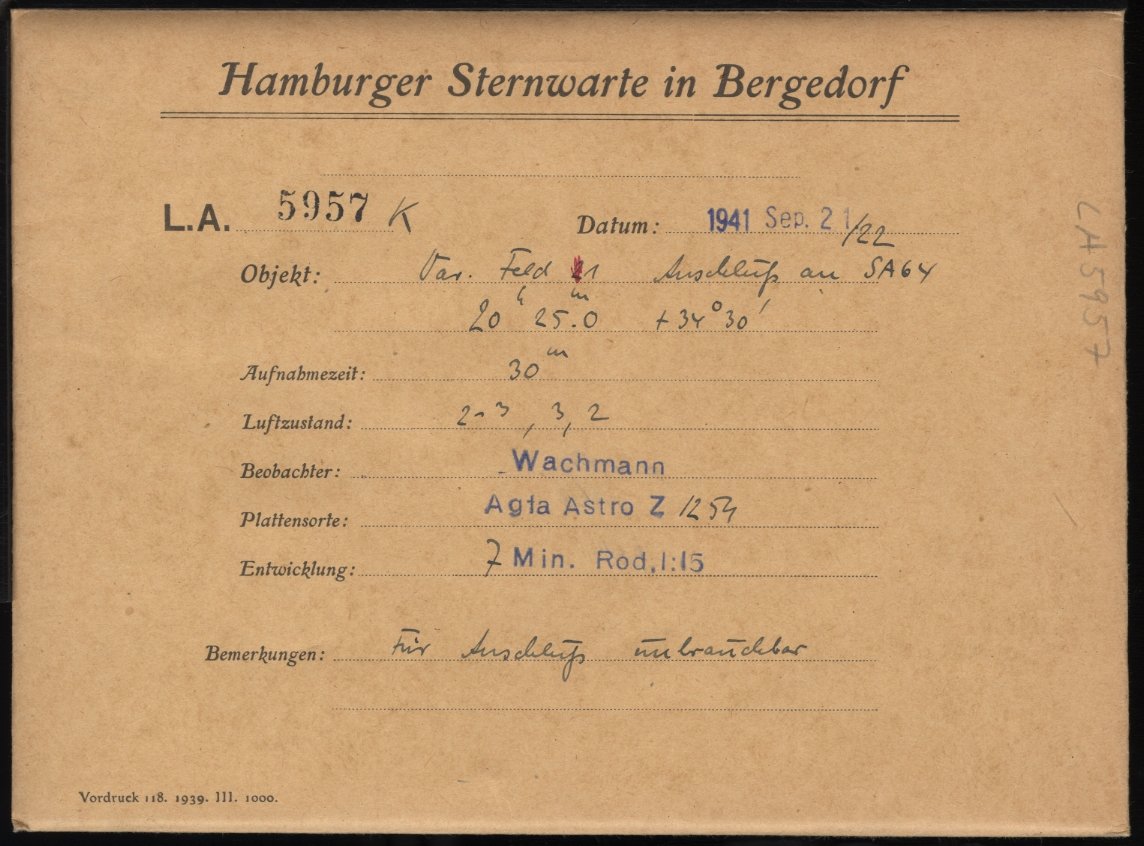 Hamburger Sternwarte in Bergedorf
L.A. 5957 K
Datum: 1941 Sep. 21/22
Objekt: Var. Feld 1 Anschluß an SA64
20ʰ 25.ᵐ0 +34°30′
Aufnahmezeit: 30ᵐ
Luftzustand: 2-3, 3, 2
Beobachter: Wachmann
Plattensorte: Agfa Astro Z 1254
Entwicklung: 7 Min. Rod. 1:15
Bemerkungen: Für Anschluß unbrauchbar
Vordruck 118. 1939. III. 1000.
LA5957